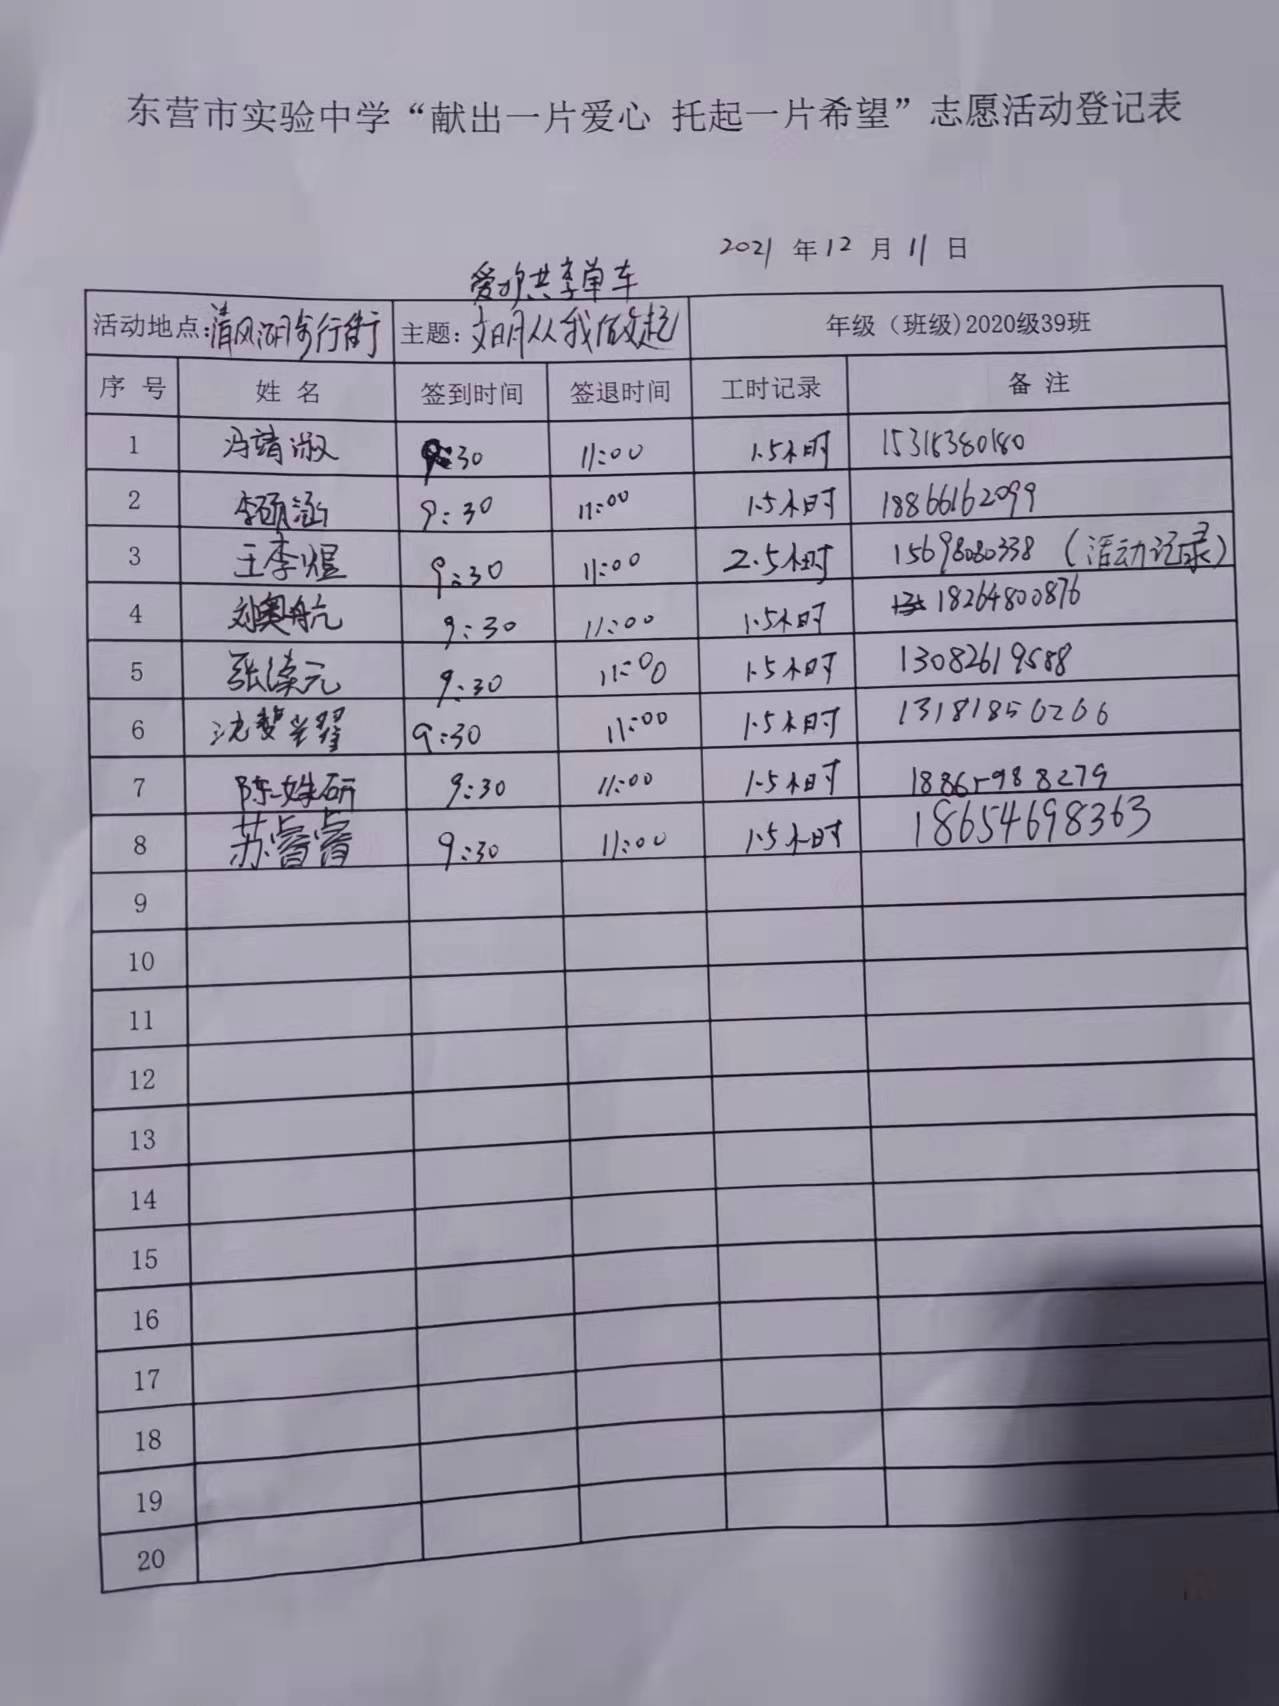 东营市实验中学“献出一片爱心 托起一片希望”志愿活动登记表
2021 年 12 月 11 日
爱护共享单车
活动地点:清风湖步行街 主题: 文明从我做起 年级（班级)2020级39班
序 号 姓 名 签到时间 签退时间 工时记录 备 注
1 冯靖淑 9:30 11:00 1.5小时 15315380180
2 李硕涵 9:30 11:00 1.5小时 18866162099
3 王李煜 9:30 11:00 2.5小时 15698080338（活动记录）
4 刘奥航 9:30 11:00 1.5小时 18264800876
5 张溱元 9:30 11:00 1.5小时 13082619588
6 沈 9:30 11:00 1.5小时 13181850206
7 陈姝研 9:30 11:00 1.5小时 18865988279
8 苏睿睿 9:30 11:00 1.5小时 18654698363
9
10
11
12
13
14
15
16
17
18
19
20